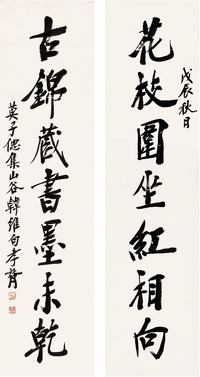 戊辰秋日
花校圍坐紅相向
古錦藏書墨未乾
莫子偲集山谷韓維句孝胥